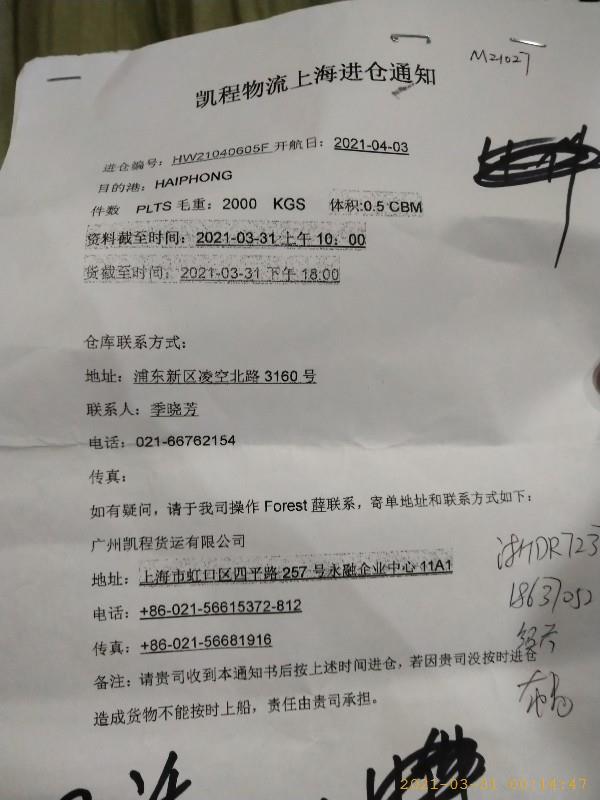 M21027
凯程物流上海进仓通知
进仓编号：HW21040605F 开航日：2021-04-03
目的港：HAIPHONG
件数 PLTS 毛重：2000 KGS 体积:0.5 CBM
资料截至时间：2021-03-31 上午 10：00
货截至时间：2021-03-31 下午 18:00
仓库联系方式：
地址：浦东新区凌空北路 3160 号
联系人：季晓芳
电话：021-66762154
传真：
如有疑问，请于我司操作 Forest 薛联系，寄单地址和联系方式如下：
广州凯程货运有限公司
地址：上海市虹口区四平路 257 号永融企业中心 11A1
电话：+86-021-56615372-812
传真：+86-021-56681916
备注：请贵司收到本通知书后按上述时间进仓，若因贵司没按时进仓
造成货物不能按时上船，责任由贵司承担。
浙HDR723
2021-03-31 00:14:47